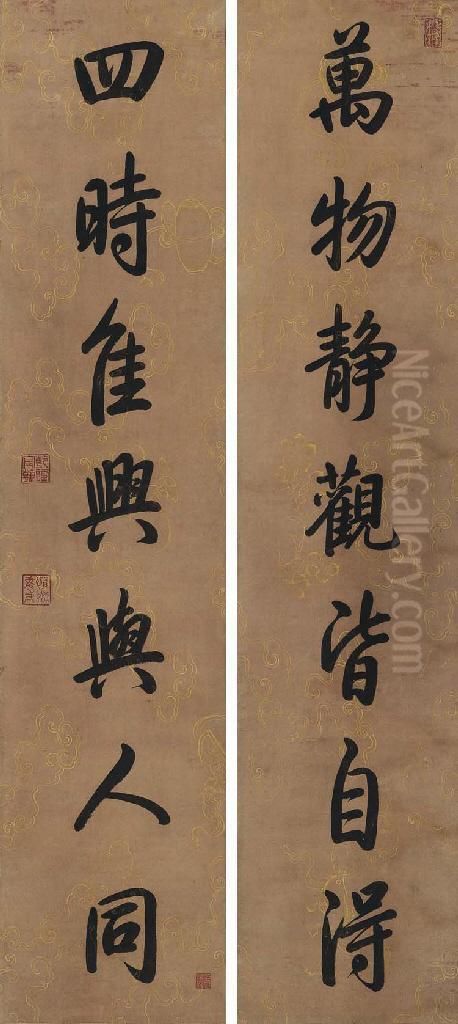 萬物静觀皆自得
四時佳興與人同
NiceArtGallery.com